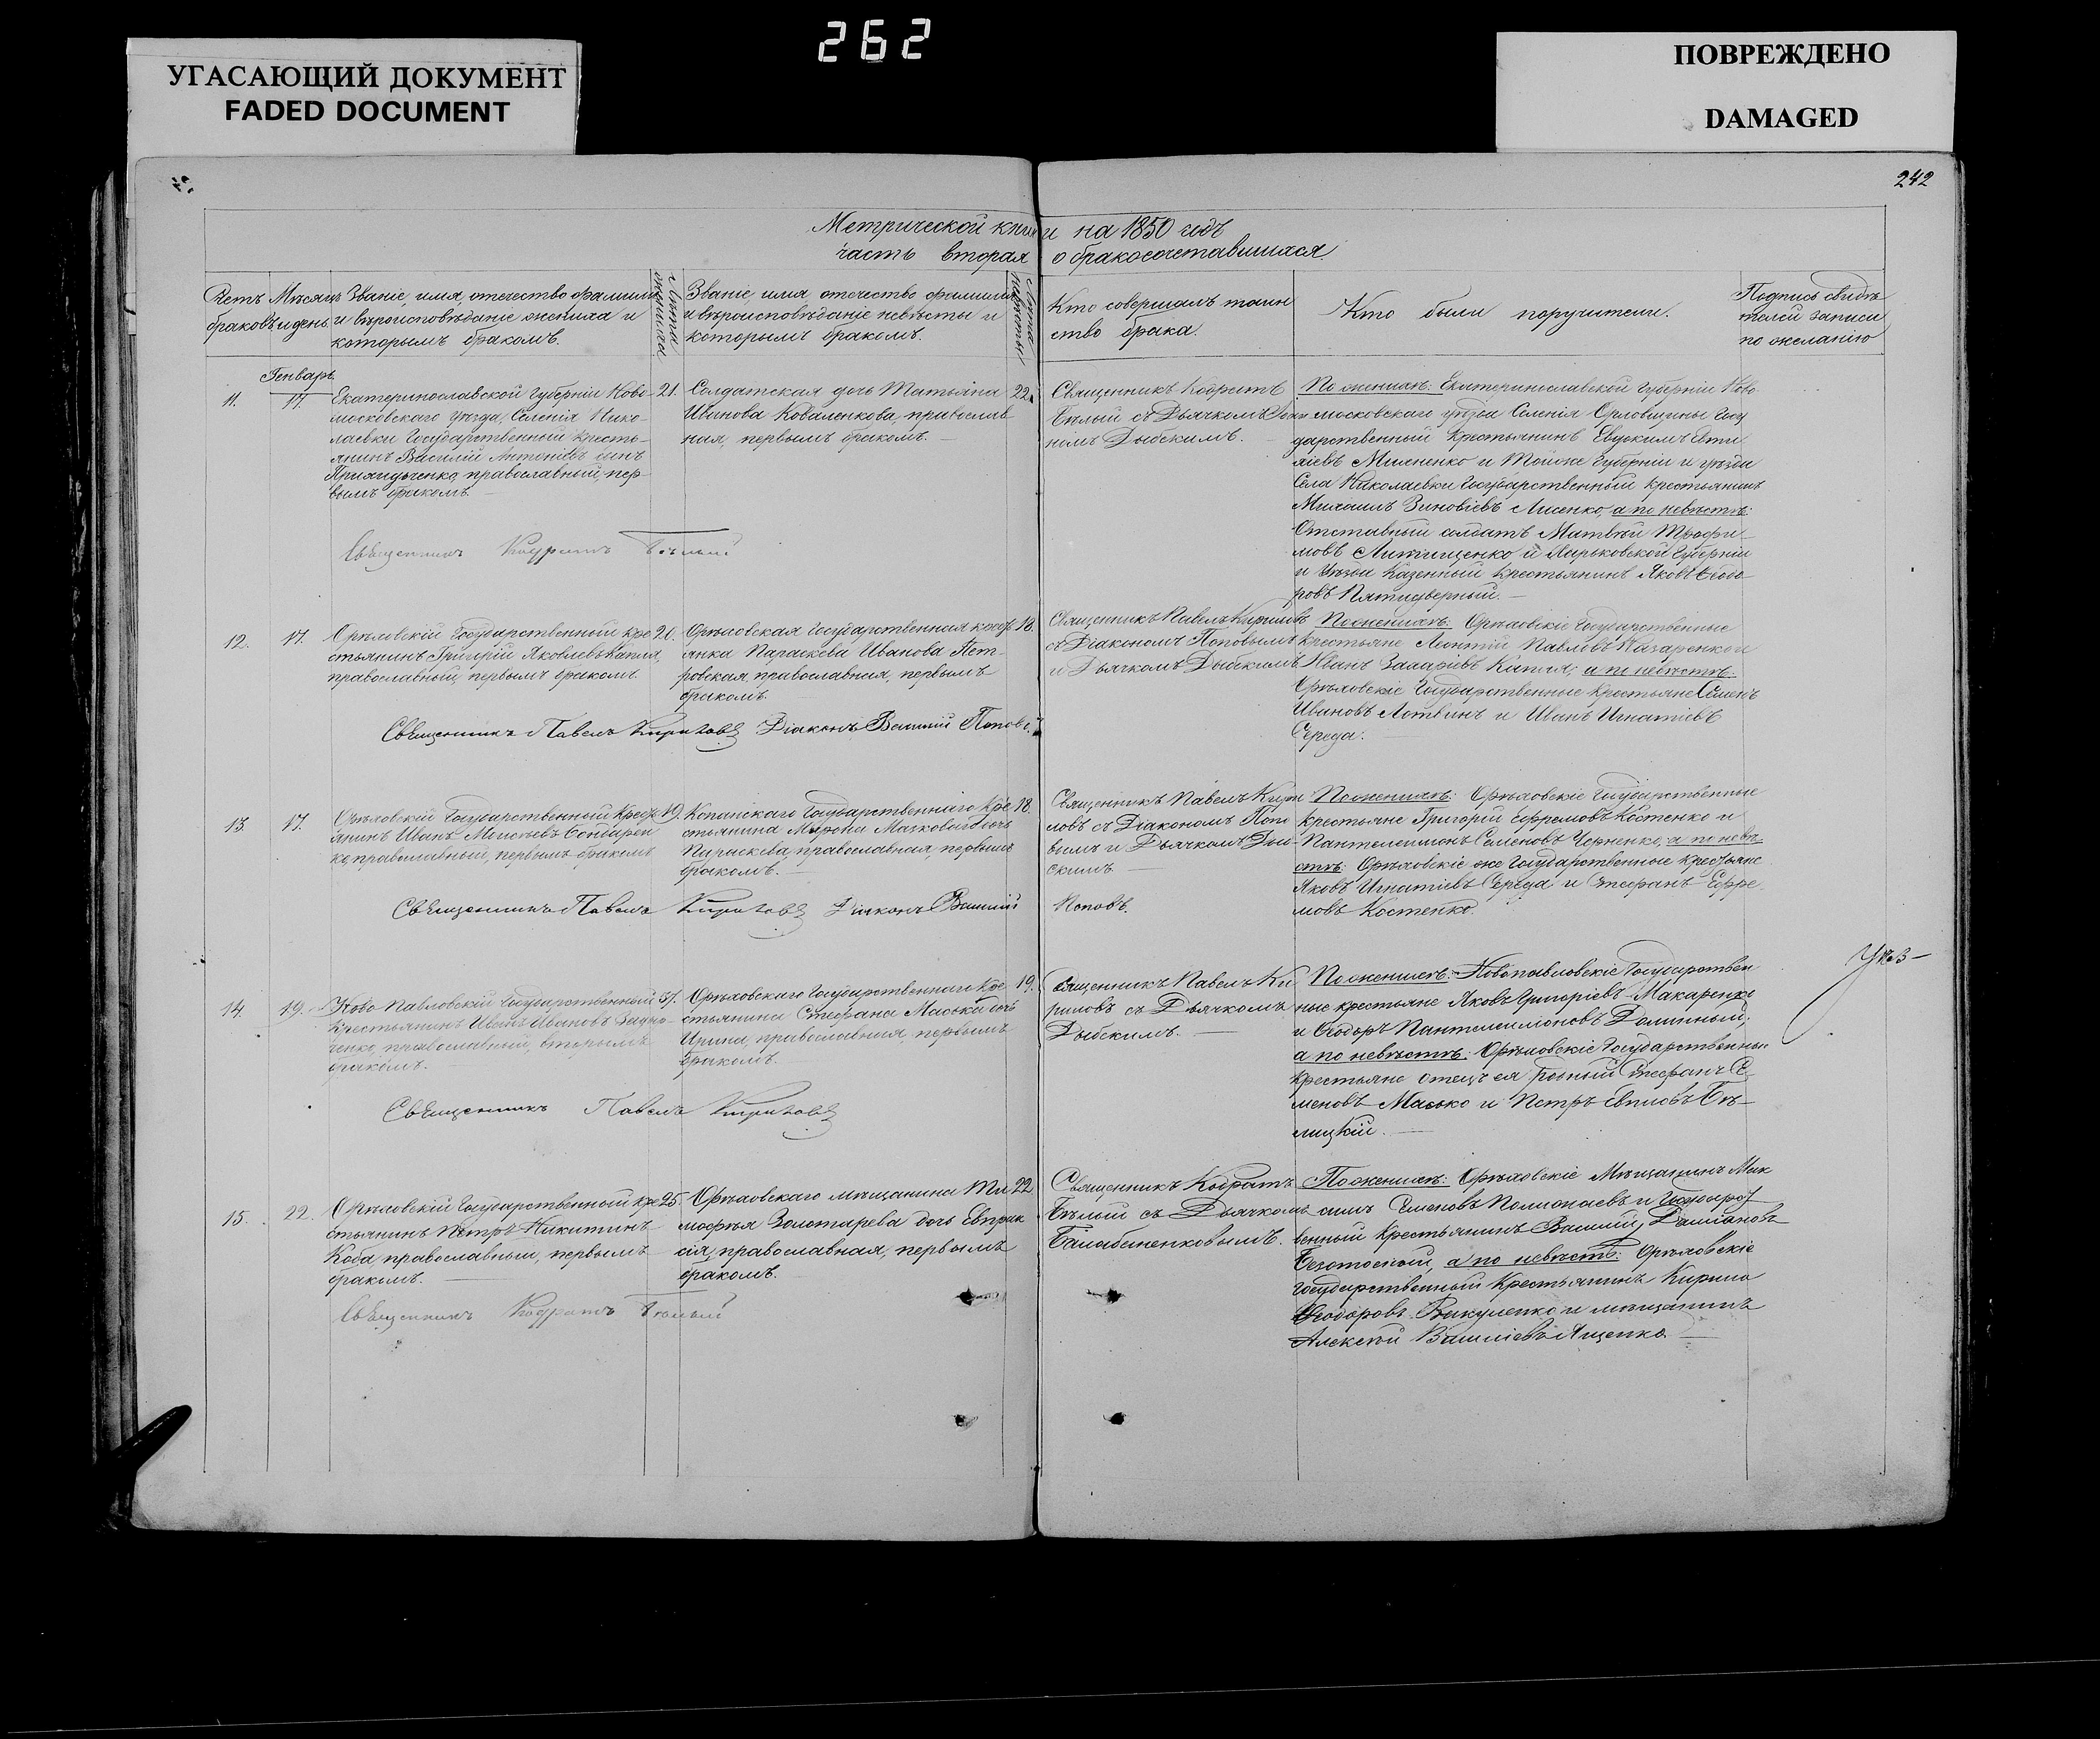 262
УГАСАЮЩИЙ ДОКУМЕНТ
FADED DOCUMENT
ПОВРЕЖДЕНО
DAMAGED
242
Метрической книги на 1850 годъ
часть вторая о бракосочетавшихся
Счетъ браковъ
Мѣсяцъ и день
Званіе, имя, отечество фамилія
и вѣроисповѣданіе жениха и
которымъ бракомъ.
Лѣта жениха
Званіе, имя, отечество фамилія
и вѣроисповѣданіе невѣсты и
которымъ бракомъ.
Лѣта невѣсты
Кто совершалъ таин
ство брака.
Кто были поручители.
Подпись свидѣ
телей записи
по желанію
Генварь
11.
17.
Екатеринославской Губерніи Ново-
московскаго уѣзда, Селенія Нико-
лаевки Государственный кресть-
янинъ Василій Антоніевъ сынъ
православный, пер-
вымъ бракомъ.
21.
Солдатская дочь Татьяна
Иванова Коваленкова, православ
ная, первымъ бракомъ.
22.
Священникъ Кодратъ
Бѣлый съ Дьячкомъ
номъ Дыбскимъ.
По женихѣ: Екатеринославской Губерніи Ново-
московскаго уѣзда Селенія Орловщины Госу
дарственный крестьянинъ Евдокимъ
Миленко и Тойже Губерніи и уѣзда
Села Николаевки Государственный крестьянинъ
Михаилъ Зиновіевъ Лисенко, а по невѣстѣ:
Отставный солдатъ Матвѣй Трофи-
мовъ Литвищенко и Харьковской Губерніи
и Уѣзда Казенный крестьянинъ Яковъ Ѳеодо-
ровъ
Священникъ Кодратъ Бѣлый
12.
17.
Орѣховскій Государственный кре
стьянинъ Григорій Яковлевъ Капля,
православный, первымъ бракомъ.
20.
Орѣховская Государственная кресть
янка Параскева Иванова Пет-
ровская, православная, первымъ
бракомъ.
18.
Священникъ Павелъ Кириловъ
съ Діакономъ Поповымъ
и Дьячкомъ Дыбскимъ
По женихѣ: Орѣховскіе Государственные
крестьяне Леонтій Павловъ Назаренко и
Иванъ Захаріевъ Капля; а по невѣстѣ:
Орѣховскіе Государственные крестьяне Семенъ
Ивановъ Литвинъ и Иванъ Игнатіевъ
Середа.
Священникъ Павелъ Кириловъ Діаконъ Василій Поповъ.
13.
17.
Орѣховскій Государственный Кресть
янинъ Иванъ Моисеевъ Бондарен
ко, православный, первымъ бракомъ
19.
Копанскаго Государственнаго Кре
стьянина Мирона Масковаго дочь
Параскева, православная, первымъ
бракомъ.
18.
Священникъ Павелъ Кири
ловъ съ Діакономъ Попо
вымъ и Дьячкомъ Дыб-
скимъ
По женихѣ: Орѣховскіе Государственные
крестьяне Григорій Ефремовъ Костенко и
Пантелеимонъ Семеновъ Черненко, а по невѣ-
стѣ: Орѣховскіе же Государственные крестьяне
Яковъ Игнатіевъ Середа и Стефанъ Ефре-
мовъ Костенко.
Священникъ Павелъ Кириловъ Діаконъ Василій Поповъ.
14.
19.
Ново-Павловскій Государственный
Крестьянинъ Иванъ Ивановъ Задно-
ченко, православный, вторымъ
бракомъ.
Орѣховскаго Государственнаго Кре
стьянина Стефана Маська дочь
Ирина, православная, первымъ
бракомъ.
19.
Священникъ Павелъ Ки
риловъ съ Дьячкомъ
Дыбскимъ.
По женихѣ: Новопавловскіе Государствен
ные крестьяне Яковъ Григоріевъ Макаренко
и Ѳеодоръ Пантелеимоновъ Долинный;
а по невѣстѣ: Орѣховскіе Государственные
Крестьяне отецъ ея родный Стефанъ Се
меновъ Масько и Петръ Бѣ-
лицкій.
Священникъ Павелъ Кириловъ
15.
22.
Орѣховскій Государственный кре
стьянинъ Петръ Никитинъ
Коба, православный, первымъ
бракомъ.
25.
Орѣховскаго мѣщанина Ти
мофея Золотарева дочь Евпрак
сія, православная, первымъ
бракомъ.
22
Священникъ Кодратъ
Бѣлый съ Дьячкомъ
Балабаненковымъ.
По женихѣ: Орѣховскіе Мѣщанинъ Мак
симъ Семеновъ и Государст
венный Крестьянинъ Василій Даміановъ
а по невѣстѣ: Орѣховскіе
Государственный Крестьянинъ Кирило
Ѳеодоровъ Викуленко и мѣщанинъ
Алексѣй Василіевъ Ященко.
Священникъ Кодратъ Бѣлый